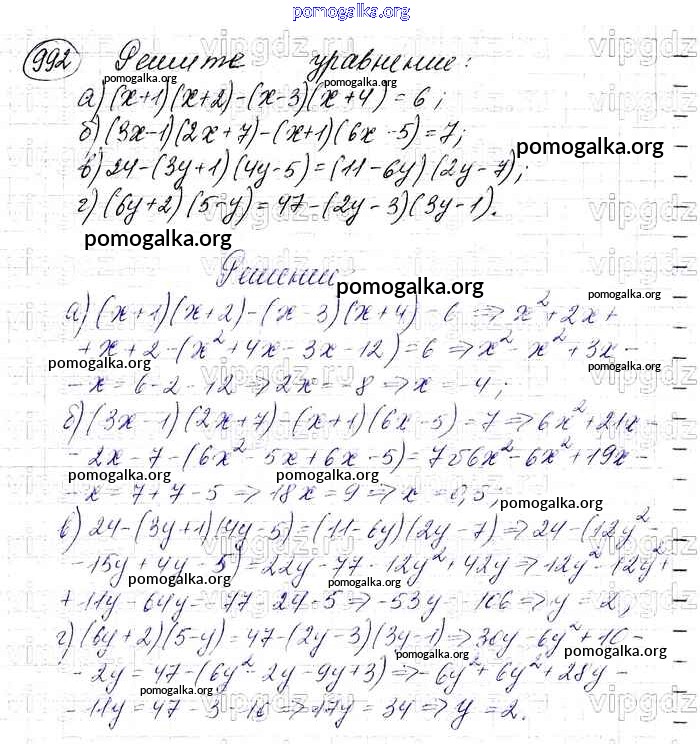 pomogalka.org
992 Решите уравнение:
а) (x+1)(x+2)-(x-3)(x+4)=6;
б) (3x-1)(2x+7)-(x+1)(6x-5)=7;
в) 24-(3y+1)(4y-5)=(11-6y)(2y-7);
г) (6y+2)(5-y)=47-(2y-3)(3y-1).
Решение
а) (x+1)(x+2)-(x-3)(x+4)-6 => x²+2x+
+x+2-(x²+4x-3x-12)=6 => x²-x²+3x-
-x=6-2-12 => 2x=-8 => x=-4;
б) (3x-1)(2x+7)-(x+1)(6x-5)=7 => 6x²+21x-
-2x-7-(6x²-5x+6x-5)=7 б6x²-6x²+19x-
-x=7+7-5 => 18x=9 => x=0,5;
в) 24-(3y+1)(4y-5)=(11-6y)(2y-7) => 24-(12y²
-15y+4y-5)=22y-77-12y²+42y => 12y²-12y²+
+11y-64y=-77-24-5 => -53y=-106 => y=2;
г) (6y+2)(5-y)=47-(2y-3)(3y-1) => 30y-6y²+10-
-2y=47-(6y²-2y-9y+3) => -6y²+6y²+28y-
-11y=47-3-10 => 17y=34 => y=2.